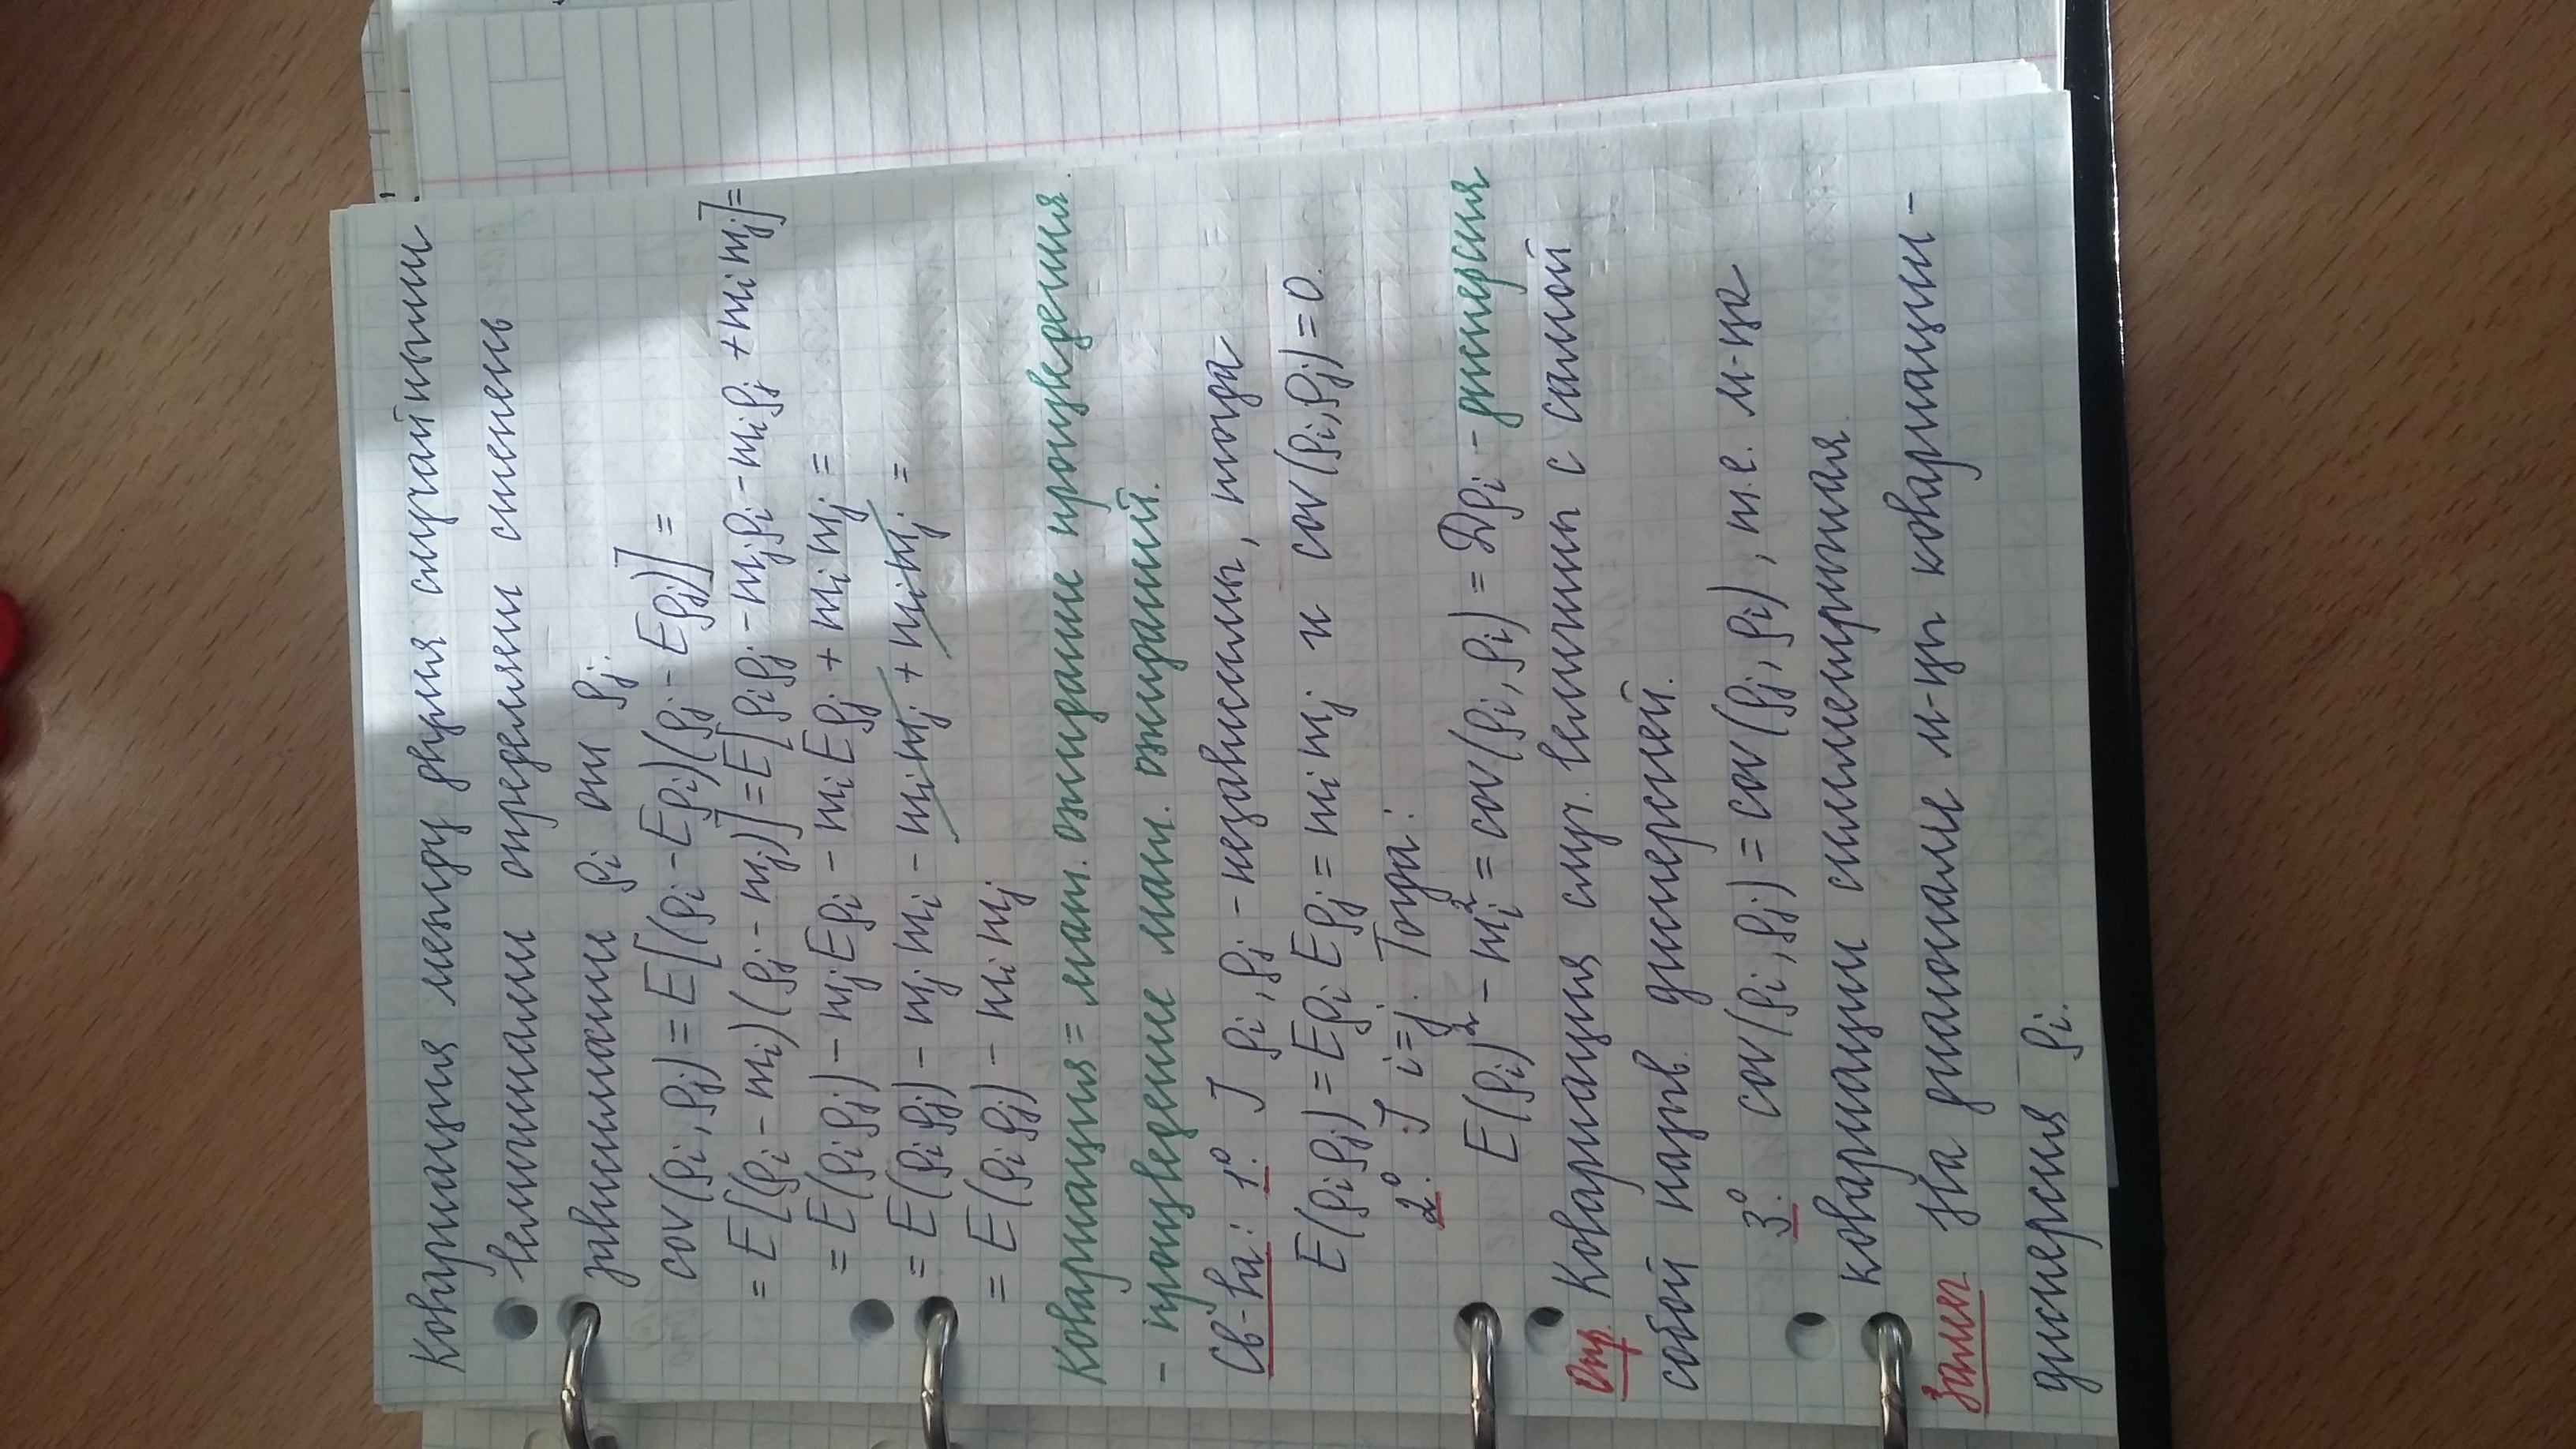 Ковариация между двумя случайными
величинами определяет степень
зависимости ρi от ρj.
cov(ρi, ρj) = E[(ρi - Eρi)(ρj - Eρj)] =
= E[(ρi - mi)(ρj - mj)] = E[ρiρj - mjρi - miρj + mi mj] =
= E(ρiρj) - mjEρi - miEρj + mi mj =
= E(ρiρj) - mj mi - mi mj + mi mj =
= E(ρiρj) - mi mj
Ковариация = мат. ожидание произведения
- произведение мат. ожиданий.
Св-ва: 1°. ] ρi, ρj - независимы, тогда
E(ρiρj) = Eρi Eρj = mi mj и cov(ρi, ρj) = 0.
2°. ] i=j. Тогда:
E(ρi)² - mi² = cov(ρi, ρi) = Dρi - дисперсия
Опр. Ковариация случ. величины с самой
собой назыв. дисперсией.
3°. cov(ρi, ρj) = cov(ρj, ρi), т.е. м-ца
ковариации симметричная.
Замеч. На диагонале м-цы ковариации -
дисперсия ρi.